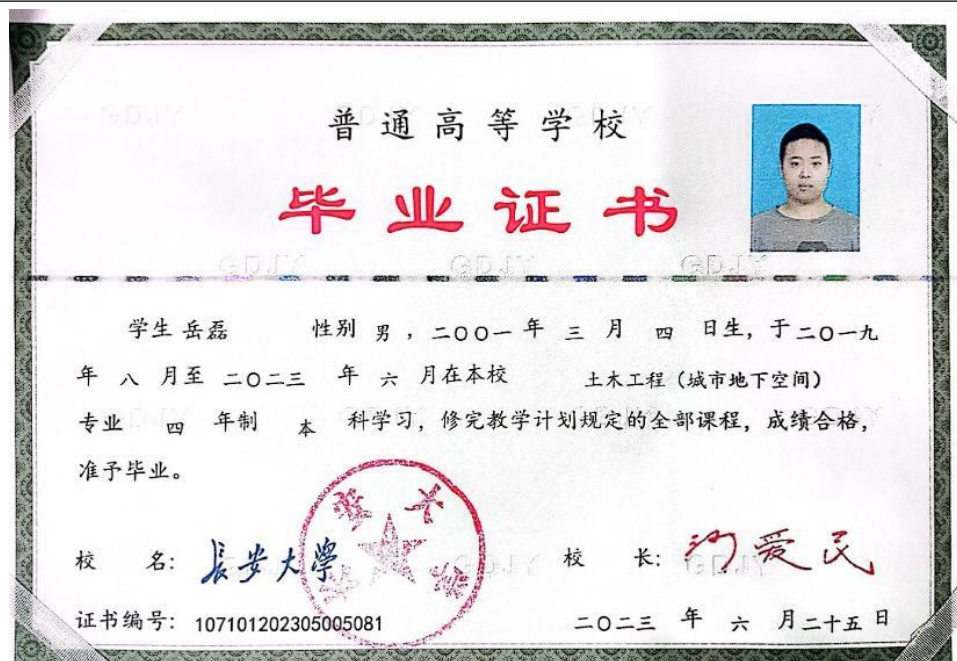 普通高等学校
毕业证书
学生 岳磊 性别 男，二〇〇一 年 三 月 四 日生，于 二〇一九
年 八 月至 二〇二三 年 六 月在本校 土木工程（城市地下空间）
专业 四 年制 本 科学习，修完教学计划规定的全部课程，成绩合格，
准予毕业。
校 名：長安大學 校 长：沙爱民
证书编号：107101202305005081 二〇二三 年 六 月二十五日